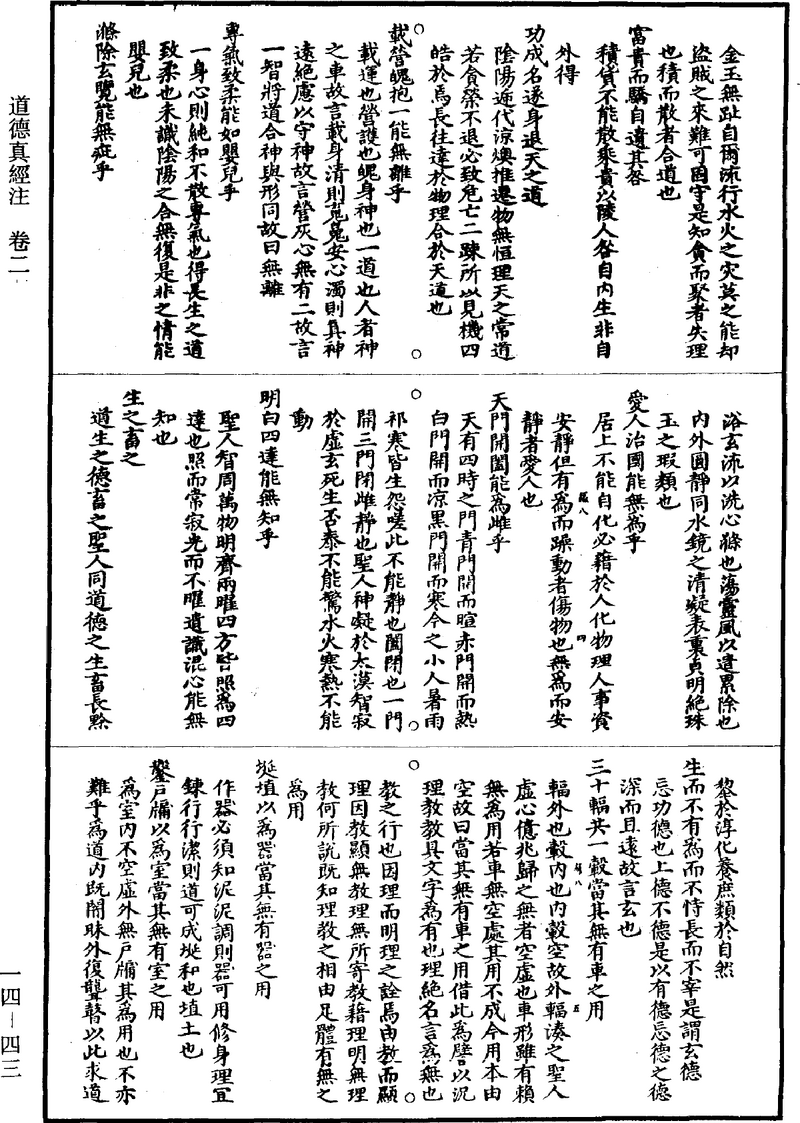 道德真經注　卷二
金玉無趾自爾流行水火之灾莫之能却
盜賊之來難可固守是知貪而聚者失理
也積而散者合道也
富貴而驕自遺其咎
積貨不能散乘貴以陵人咎自内生非自
外得
功成名遂身退天之道
陰陽遞代涼燠推遷物無恒理天之常道
若食榮不退必致危亡二踈所以見機四
皓於焉長往達於物理合於天道也
載營魄抱一能無離乎
載運也營護也魄身神也一道也人者神
之車故言載身清則魂魄安心濁則真神
遠絶慮以守神故言營灰心無有二故言
一智將道合神與形同故曰無離
專氣致柔能如嬰兒乎
一身心則純和不散專氣也得長生之道
致柔也未識陰陽之合無復是非之情能
嬰兒也
滌除玄覽能無疵乎
浴玄流以洗心滌也蕩靈風以遣累除也
内外圓靜同水鏡之清凝表裏貞明絶珠
玉之瑕纇也
愛人治國能無為乎
居上不能自化必藉於人化物理人事資
安靜但有為而躁動者傷物也無為而安
靜者愛人也
天門開闔能為雌乎
天有四時之門青門開而暄赤門開而熱
白門開而涼黑門開而寒今之小人暑雨
祁寒皆生怨嗟此不能靜也闔閉也一門
開三門閉雌靜也聖人神凝於太漠智寂
於虛玄死生否泰不能驚水火寒熱不能
動
明白四達能無知乎
聖人智周萬物明齊兩曜四方皆照為四
達也照而常寂光而不曜遺識混心能無
知也
生之畜之
道生之德畜之聖人同道德之生畜長黔
黎於淳化養庶類於自然
生而不有為而不恃長而不宰是謂玄德
忘功德也上德不德是以有德忘德之德
深而且遠故言玄也
三十輻共一轂當其無有車之用
輻外也轂内也内轂空故外輻湊之聖人
虛心億兆歸之無者空虛也車形雖有賴
無為用若車無空處其用不成今用本由
空故曰當其無有車之用借此為譬以況
理教教具文字為有也理絶名言為無也
教之行也因理而明理之詮焉由教而顯
理因教顯無教理無所寄教藉理明無理
教何所説既知理教之相由足體有無之
為用
埏埴以為器當其無有器之用
作器必須知泥泥調則器可用修身理宜
錬行行潔則道可成埏和也埴土也
鑿戶牖以為室當其無有室之用
為室内不空虛外無戶牖其為用也不亦
難乎為道内既闇昧外復聾瞽以此求道
一四－四三